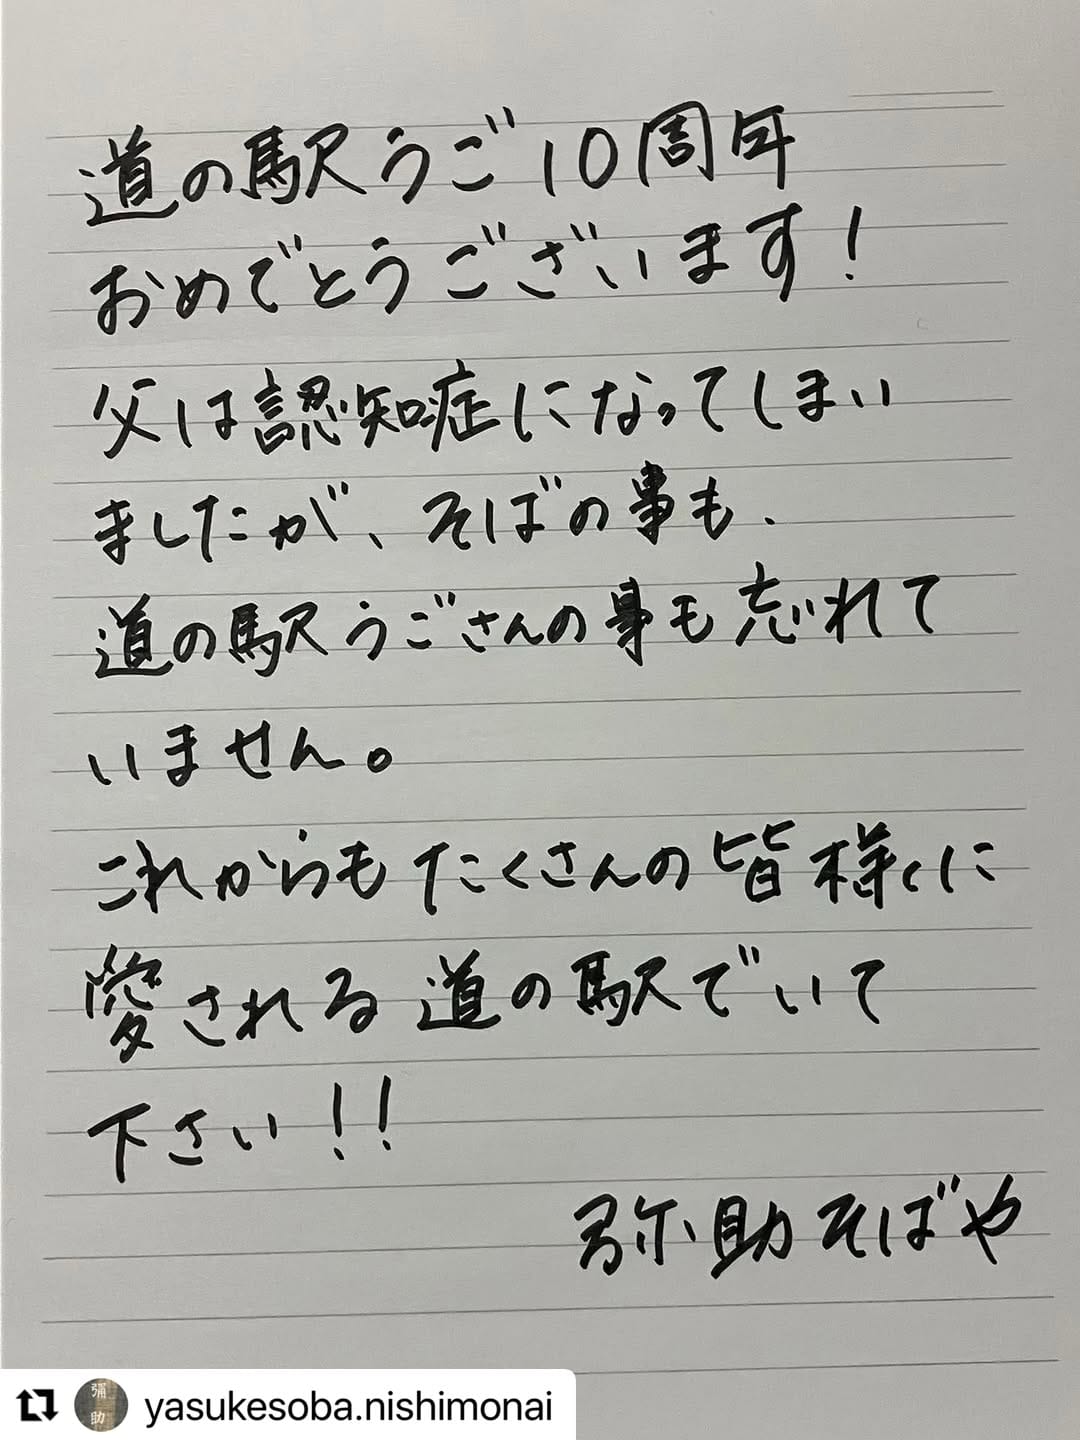 道の駅うご10周年
おめでとうございます！
父は認知症になってしまい
ましたが、そばの事も、
道の駅うごさんの事も忘れて
いません。
これからもたくさんの皆様に
愛される道の駅でいて
下さい！！
弥助そばや
彌助
yasukesoba.nishimonai